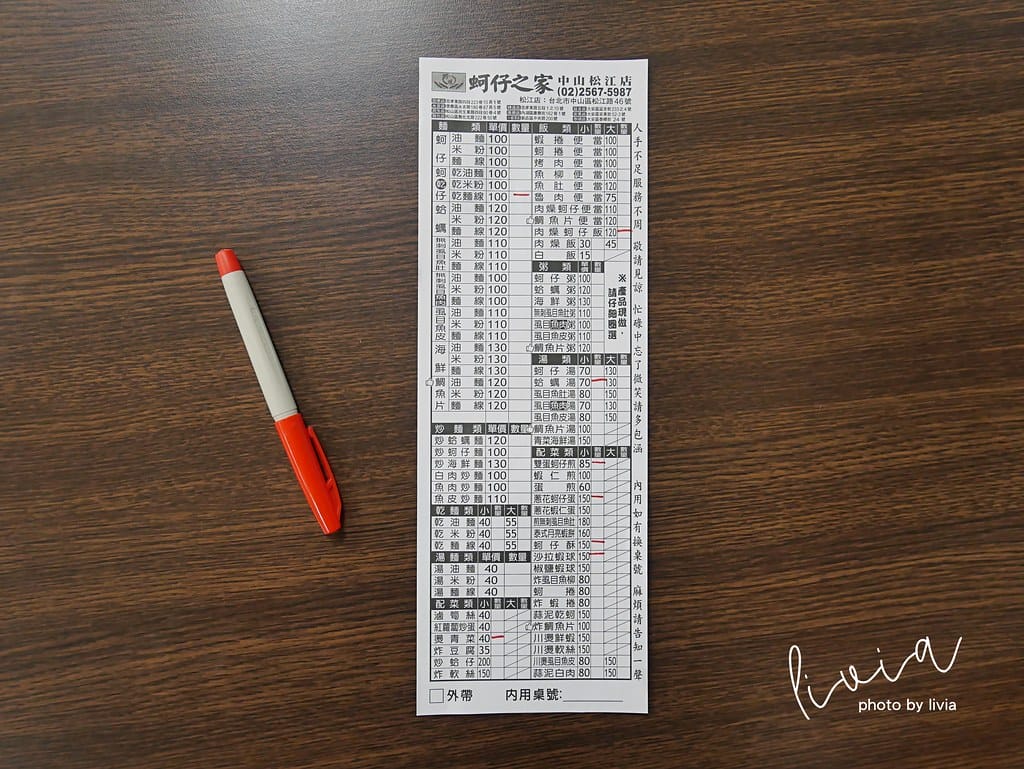 蚵仔之家 中山松江店
(02)2567-5987
松江店：台北市中山區松江路46號
麵類 單價 數量
蚵仔 油麵 100
米粉 100
麵線 100
蚵仔 乾 乾油麵 100
乾米粉 100
乾麵線 100
蛤蠣 油麵 120
米粉 120
麵線 120
無刺虱目魚肚 油麵 110
米粉 110
麵線 110
無刺虱目魚肉 油麵 100
米粉 100
麵線 100
虱目魚皮 油麵 110
米粉 110
麵線 110
海鮮 油麵 130
米粉 130
麵線 130
鯛魚片 油麵 120
米粉 120
麵線 120
炒麵類 單價 數量
炒蛤蠣麵 120
炒蚵仔麵 100
炒海鮮麵 130
白肉炒麵 100
魚肉炒麵 100
魚皮炒麵 110
乾麵類 小 數量 大 數量
乾油麵 40 55
乾米粉 40 55
乾麵線 40 55
湯麵類 單價 數量
湯油麵 40
湯米粉 40
湯麵線 40
配菜類 小 數量 大 數量
滷筍絲 40
紅蘿蔔炒蛋 40
燙青菜 40
炸豆腐 35
炒蛤仔 200
炸軟絲 150
飯類 小 數量 大 數量
蝦捲便當 100
蚵捲便當 100
烤肉便當 100
魚柳便當 100
魚肚便當 120
魯肉便當 75
肉燥蚵仔便當 110
鯛魚片便當 120
肉燥蚵仔飯 120
肉燥飯 30 45
白飯 15
粥類 單價 數量
蚵仔粥 100
蛤蠣粥 120
海鮮粥 130
無刺虱目魚肚粥 110
虱目魚肉粥 100
虱目魚皮粥 110
鯛魚片粥 120
※產品現做，
請仔細圈選
湯類 小 數量 大 數量
蚵仔湯 70 130
蛤蠣湯 70 130
虱目魚肚湯 80 150
虱目魚肉湯 70 130
虱目魚皮湯 80 150
鯛魚片湯 100
青菜海鮮湯 150
配菜類 小 數量 大 數量
雙蛋蚵仔煎 85
蝦仁煎 100
蛋煎 60
蔥花蚵仔蛋 150
蔥花蝦仁蛋 150
煎無刺虱目魚肚 180
泰式月亮蝦餅 160
蚵仔酥 150
沙拉蝦球 150
椒鹽蝦球 150
炸虱目魚柳 80
蚵捲 80
炸蝦捲 80
蒜泥乾蚵 150
炸鯛魚片 100
川燙鮮蝦 150
川燙軟絲 150
川燙虱目魚皮 80 150
蒜泥白肉 80 150
人手不足服務不周 敬請見諒 忙碌中忘了微笑請多包涵 內用如有換桌號 麻煩請告知一聲
外帶 內用桌號:
livia
photo by livia